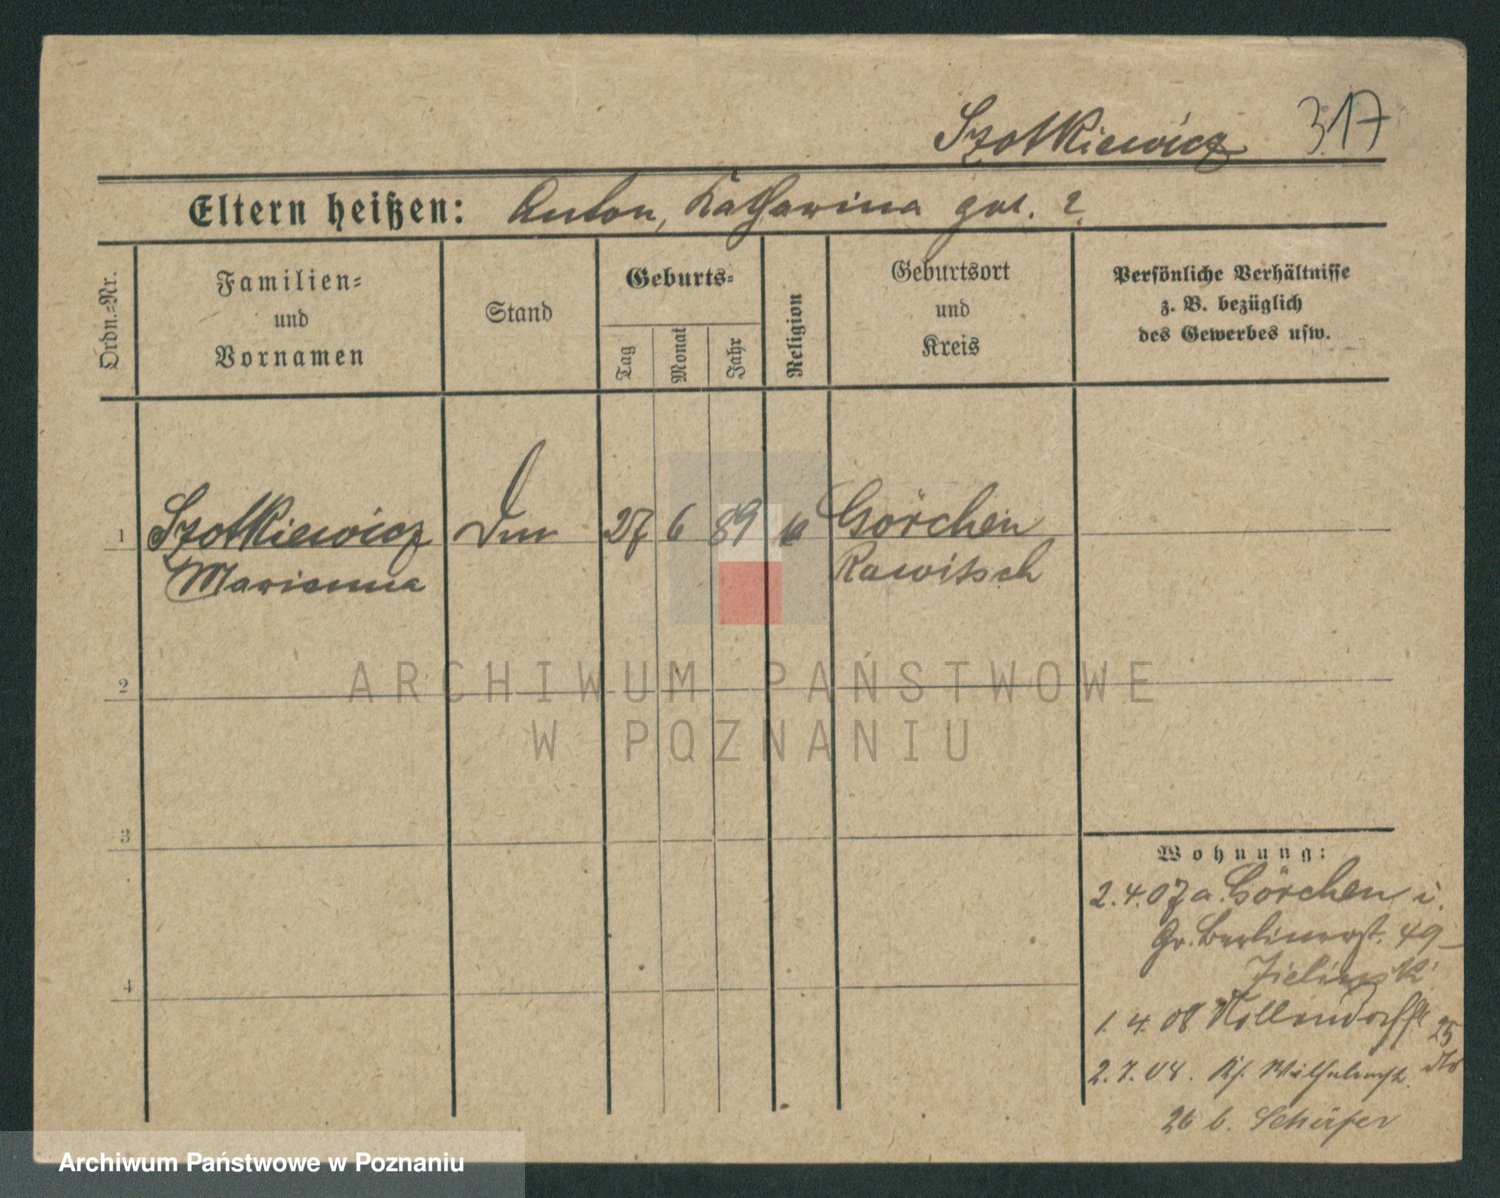 Szotkiewicz 317
Eltern heißen: Anton, Katharina geb. ?
Ordn.=Nr.
Familien=
und
Vornamen
Stand
Geburts=
Tag
Monat
Jahr
Religion
Geburtsort
und
Kreis
Persönliche Verhältnisse
z. B. bezüglich
des Gewerbes usw.
1 Szotkiewicz 27 6 89 Görchen
Marianna Rawitsch
2
3
4
Wohnung:
2.4.07 a. Görchen i.
Gr. Berlinerst. 49
Zielinski
1. 4. 08 Nollendorfst 25
2.7.08. Ks. Wilhelmst.
26 b. Schäfer
ARCHIWUM PAŃSTWOWE
W POZNANIU
Archiwum Państwowe w Poznaniu